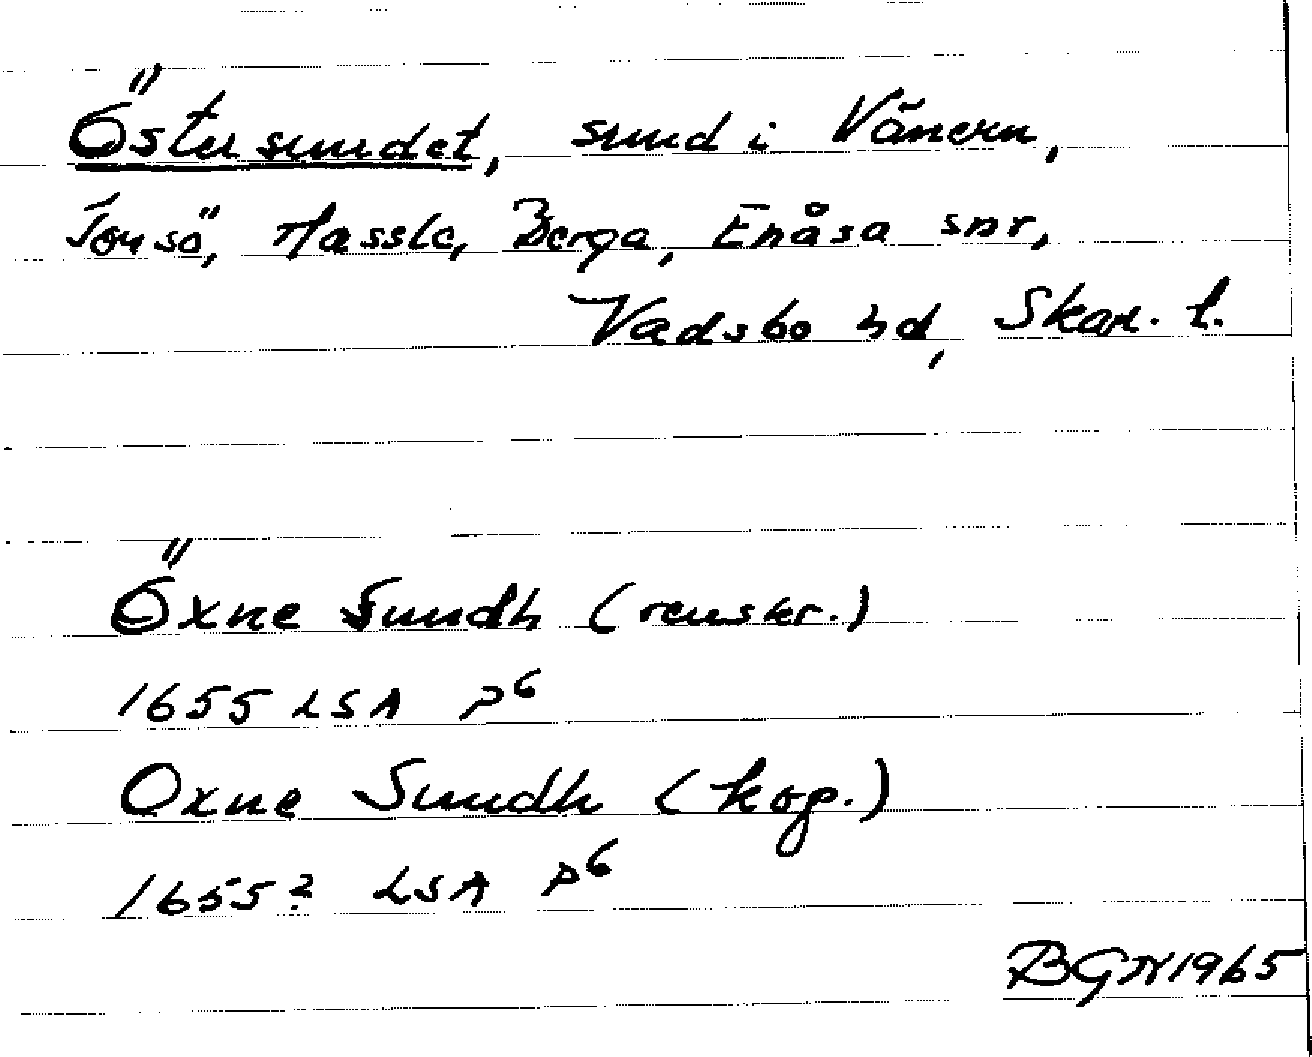 Östersundet, sund i Vänern,
Torsö, Hassle, Berga, Enåsa snr,
Vadsbo hd, Skar. l.
Öxne Sundh (renskr.)
1655 LSA P6
Oxne Sundh (kop.)
1655? LSA P6
BGN 1965